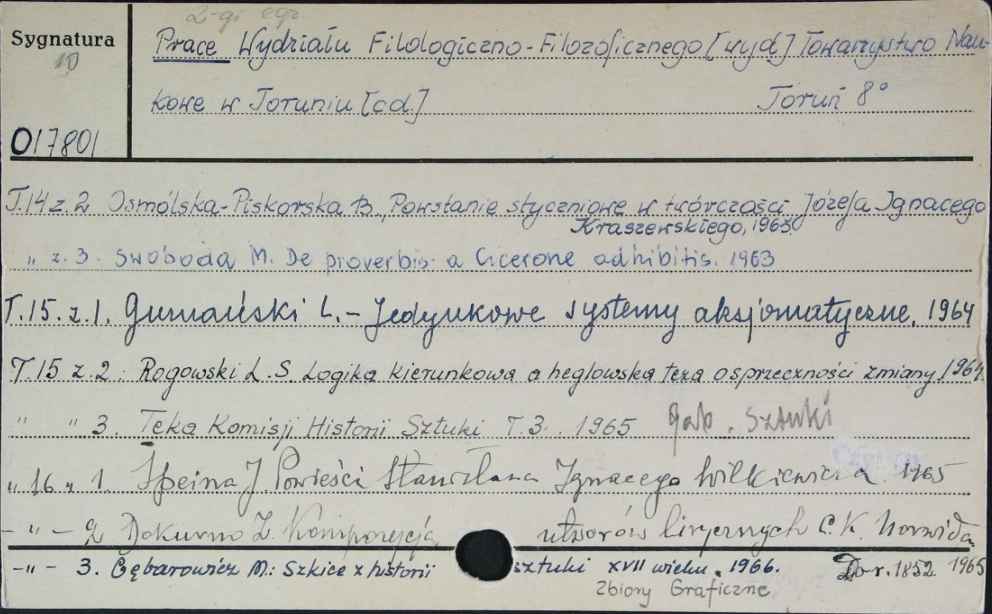 2-gi egz
Sygnatura
10
Prace Wydziału Filologiczno-Filozoficznego [wyd.] Towarzystwo Nau-
kowe w Toruniu [cd.] Toruń 8°
017801
T.14 z. 2 Osmólska-Piskorska B., Powstanie styczniowe w twórczości Józefa Ignacego
Kraszewskiego, 1963.
„ z. 3. Swoboda M. De proverbis a Cicerone adhibitis. 1963
T.15. z.1. Gumański L. - Jedynkowe systemy aksjomatyczne. 1964
T.15 z. 2. Rogowski L.S. Logika kierunkowa a heglowska teza o sprzeczności zmiany 1964.
" " 3. Teka Komisji Historii Sztuki T.3. 1965 Gab. Sztuki
„ 16 „ 1. Speina J Powieści Stanisława Ignacego Witkiewicza 1965
- " - 2 Dokurno Z. Kompozycja utworów lirycznych C.K. Norwida
- " - 3. Gębarowicz M.: Szkice z historii sztuki XVII wieku. 1966. Do r. 1852 1965
Zbiory Graficzne